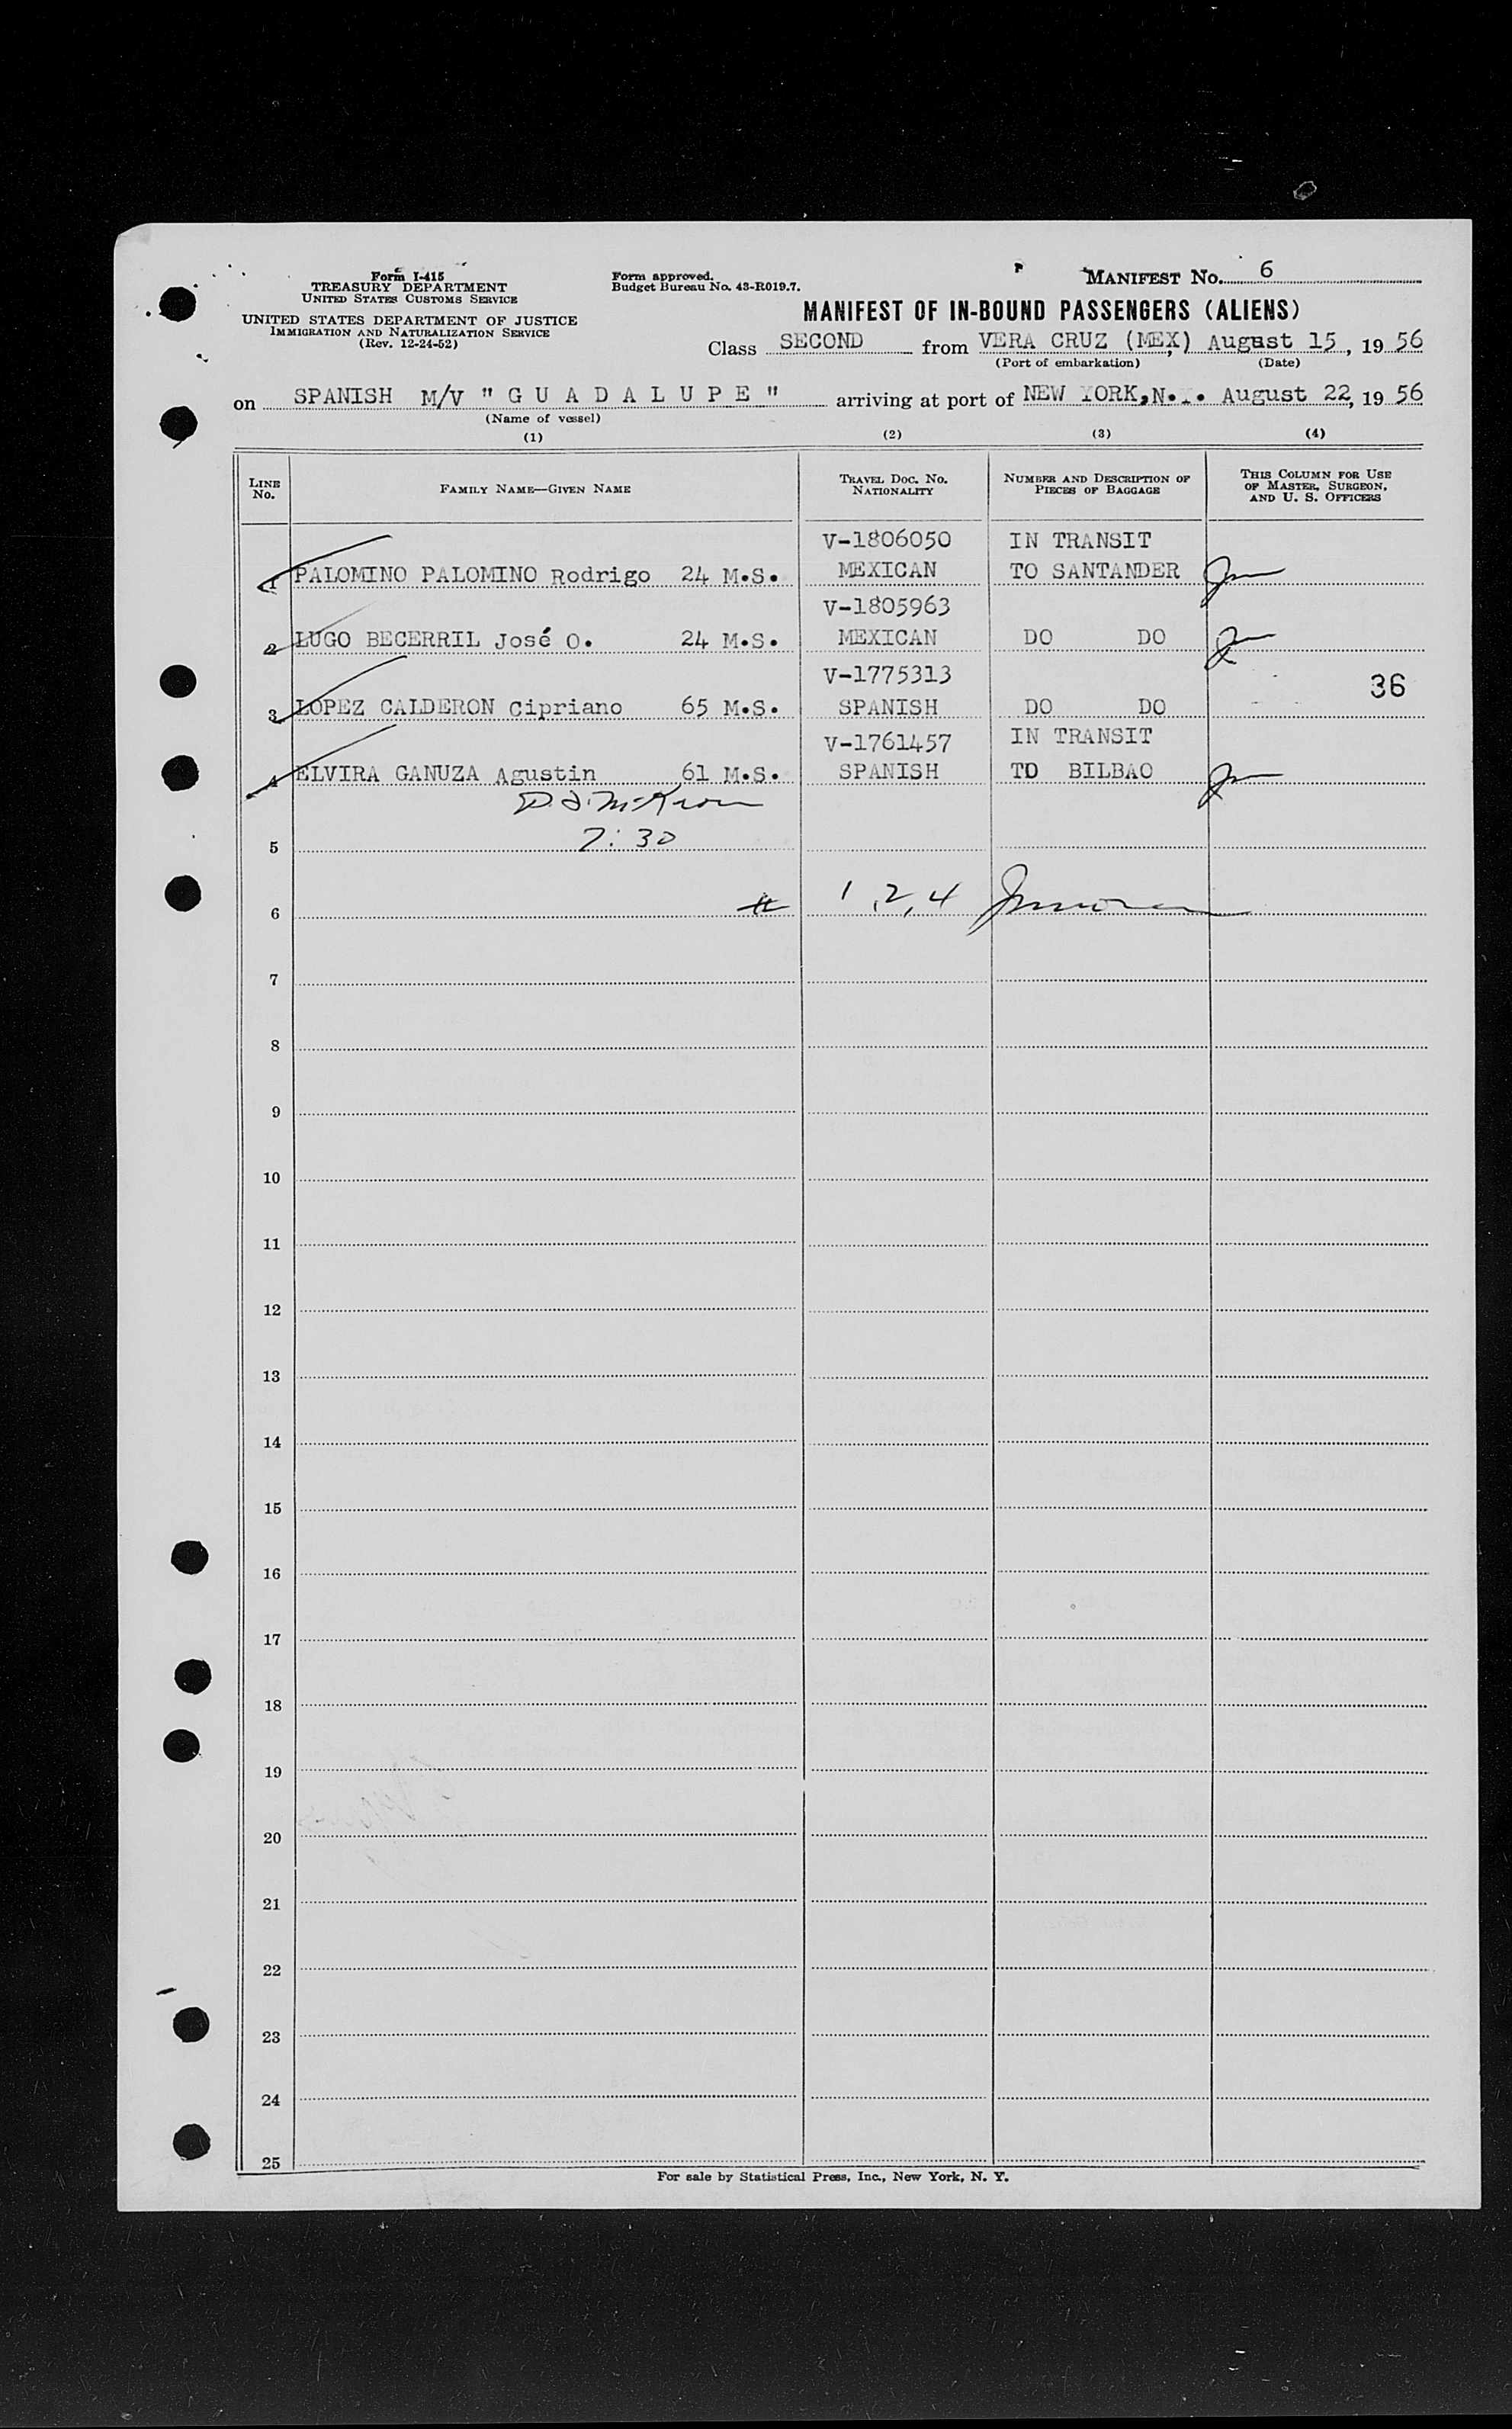 Form I-415
TREASURY DEPARTMENT
UNITED STATES CUSTOMS SERVICE
UNITED STATES DEPARTMENT OF JUSTICE
IMMIGRATION AND NATURALIZATION SERVICE
(Rev. 12-24-52)
Form approved.
Budget Bureau No. 43-R019.7.
MANIFEST No. 6
MANIFEST OF IN-BOUND PASSENGERS (ALIENS)
Class SECOND from VERA CRUZ (MEX) August 15, 19 56
(Port of embarkation) (Date)
on SPANISH M/V " G U A D A L U P E " arriving at port of NEW YORK, N.Y. August 22, 19 56
(Name of vessel)
(1) (2) (3) (4)
LINE No. FAMILY NAME—GIVEN NAME TRAVEL DOC. No. NATIONALITY NUMBER AND DESCRIPTION OF PIECES OF BAGGAGE THIS COLUMN FOR USE OF MASTER, SURGEON, AND U. S. OFFICERS
V-1806050 IN TRANSIT
1 PALOMINO PALOMINO Rodrigo 24 M.S. MEXICAN TO SANTANDER
V-1805963
2 LUGO BECERRIL José O. 24 M.S. MEXICAN DO DO
V-1775313
36
3 LOPEZ CALDERON Cipriano 65 M.S. SPANISH DO DO
V-1761457 IN TRANSIT
4 ELVIRA GANUZA Agustin 61 M.S. SPANISH TO BILBAO
7:30
5
6 1,2,4
7
8
9
10
11
12
13
14
15
16
17
18
19
20
21
22
23
24
25
For sale by Statistical Press, Inc., New York, N. Y.